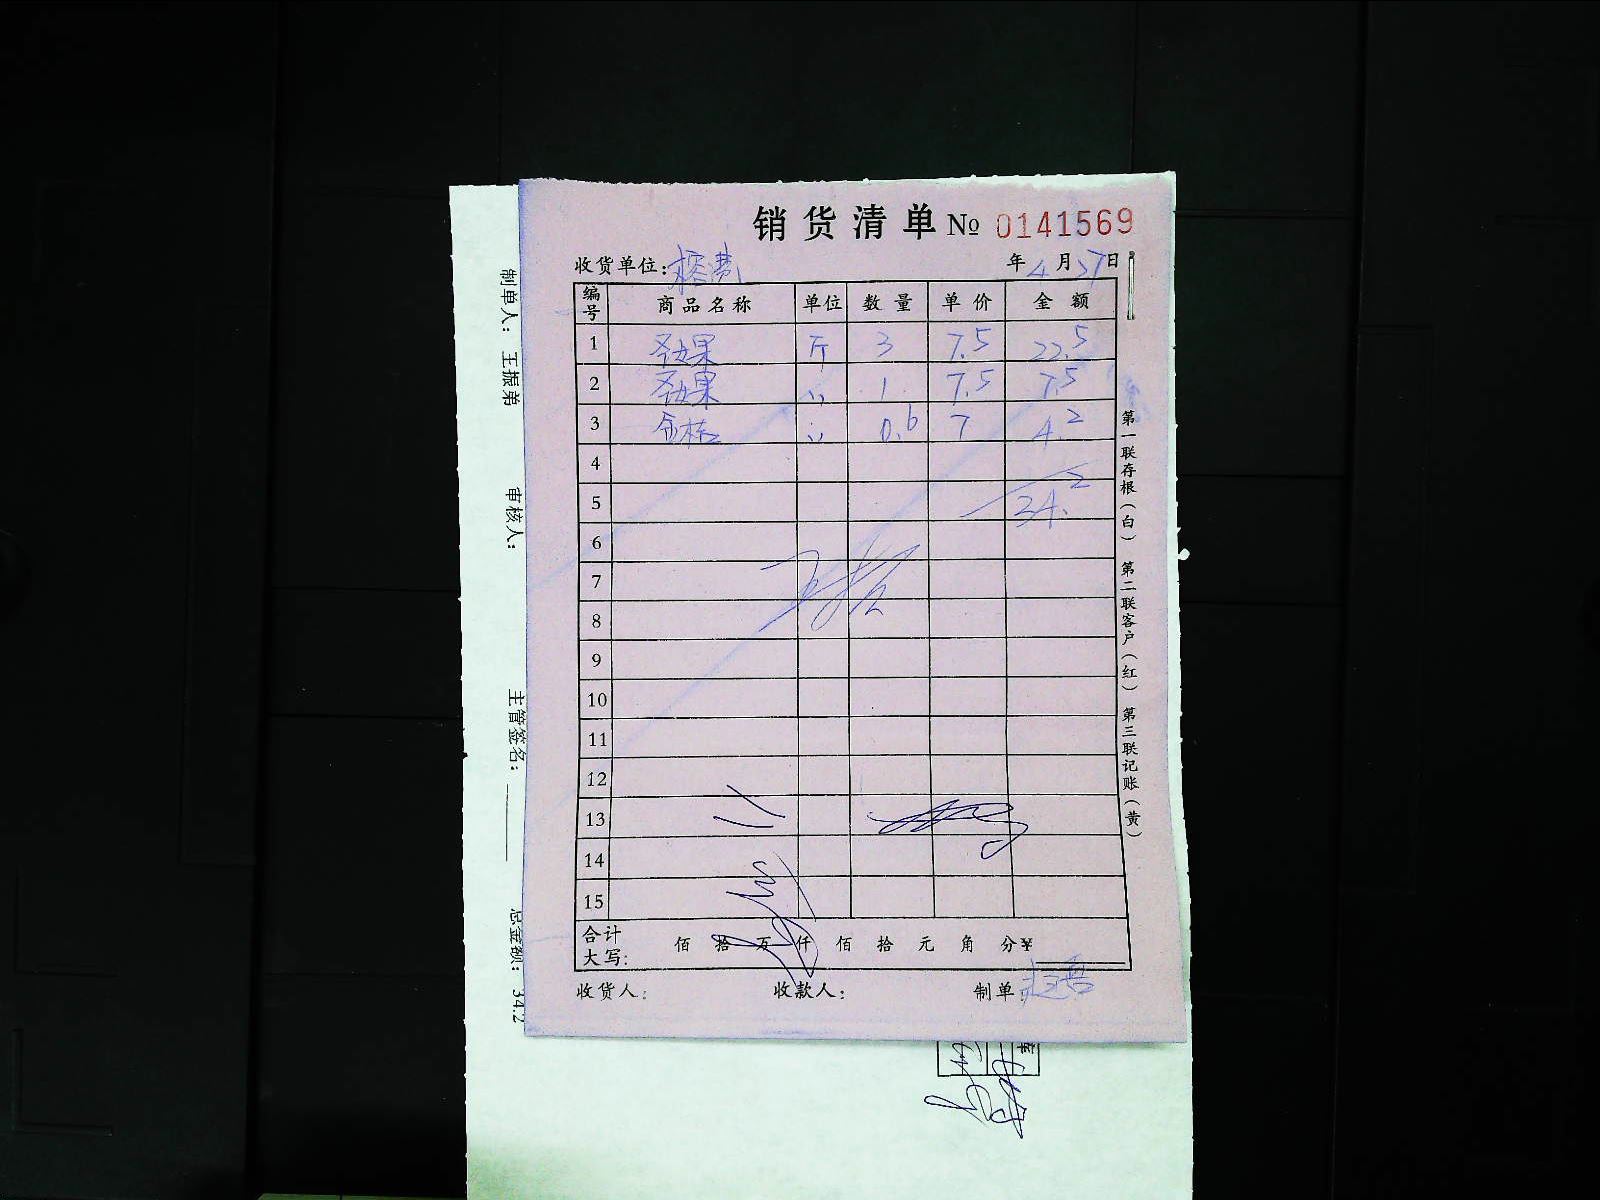 销货清单 № 0141569
收货单位:
年 4 月 27 日
编号 商品名称 单位 数量 单价 金额
1 圣女果 斤 3 7.5 22.5
2 圣女果 〃 1 7.5 7.5
3 金桔 〃 0.6 7 4.2
4
5 34.2
6
7
8
9
10
11
12
13
14
15
合计大写: 佰 拾 万 仟 佰 拾 元 角 分 ¥
收货人: 收款人: 制单:
第一联存根(白) 第二联客户(红) 第三联记账(黄)
制单人: 王振弟 审核人: 主管签名: 总金额: 34.2